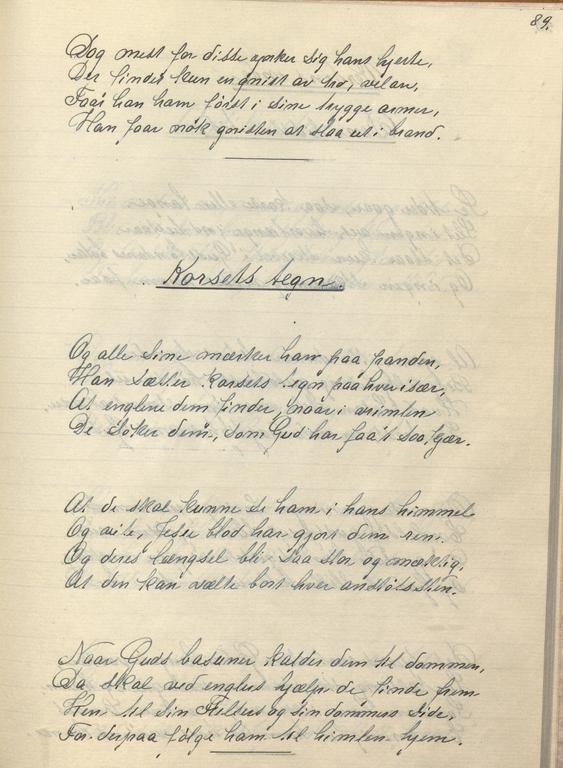 89.
Dog mest for disse ønsker sig hans hjerte,
Der findes kun en gnist av tro, velan,
Faar han ham først i sine trygge armer,
Han faar nok gnisten at slaa ut i brand.
Korsets tegn.
Og alle sine mærker han paa panden,
Han sætter korsets tegn paa hver især,
At englene dem finder, naar i vrimlen
De søker dem, som Gud har faa't saa kjær.
At de skal kunne se ham i hans himmel
Og vite, Jesu blod har gjort dem ren.
Og deres længsel bli saa stor og mæktig,
At den kan vælte bort hver anstøtssten.
Naar Guds basuner kalder dem til dommen,
Da skal ved englers hjælp de finde frem
Hen til sin Frelsers og sin dommers side,
For derpaa følge ham til himlen hjem.